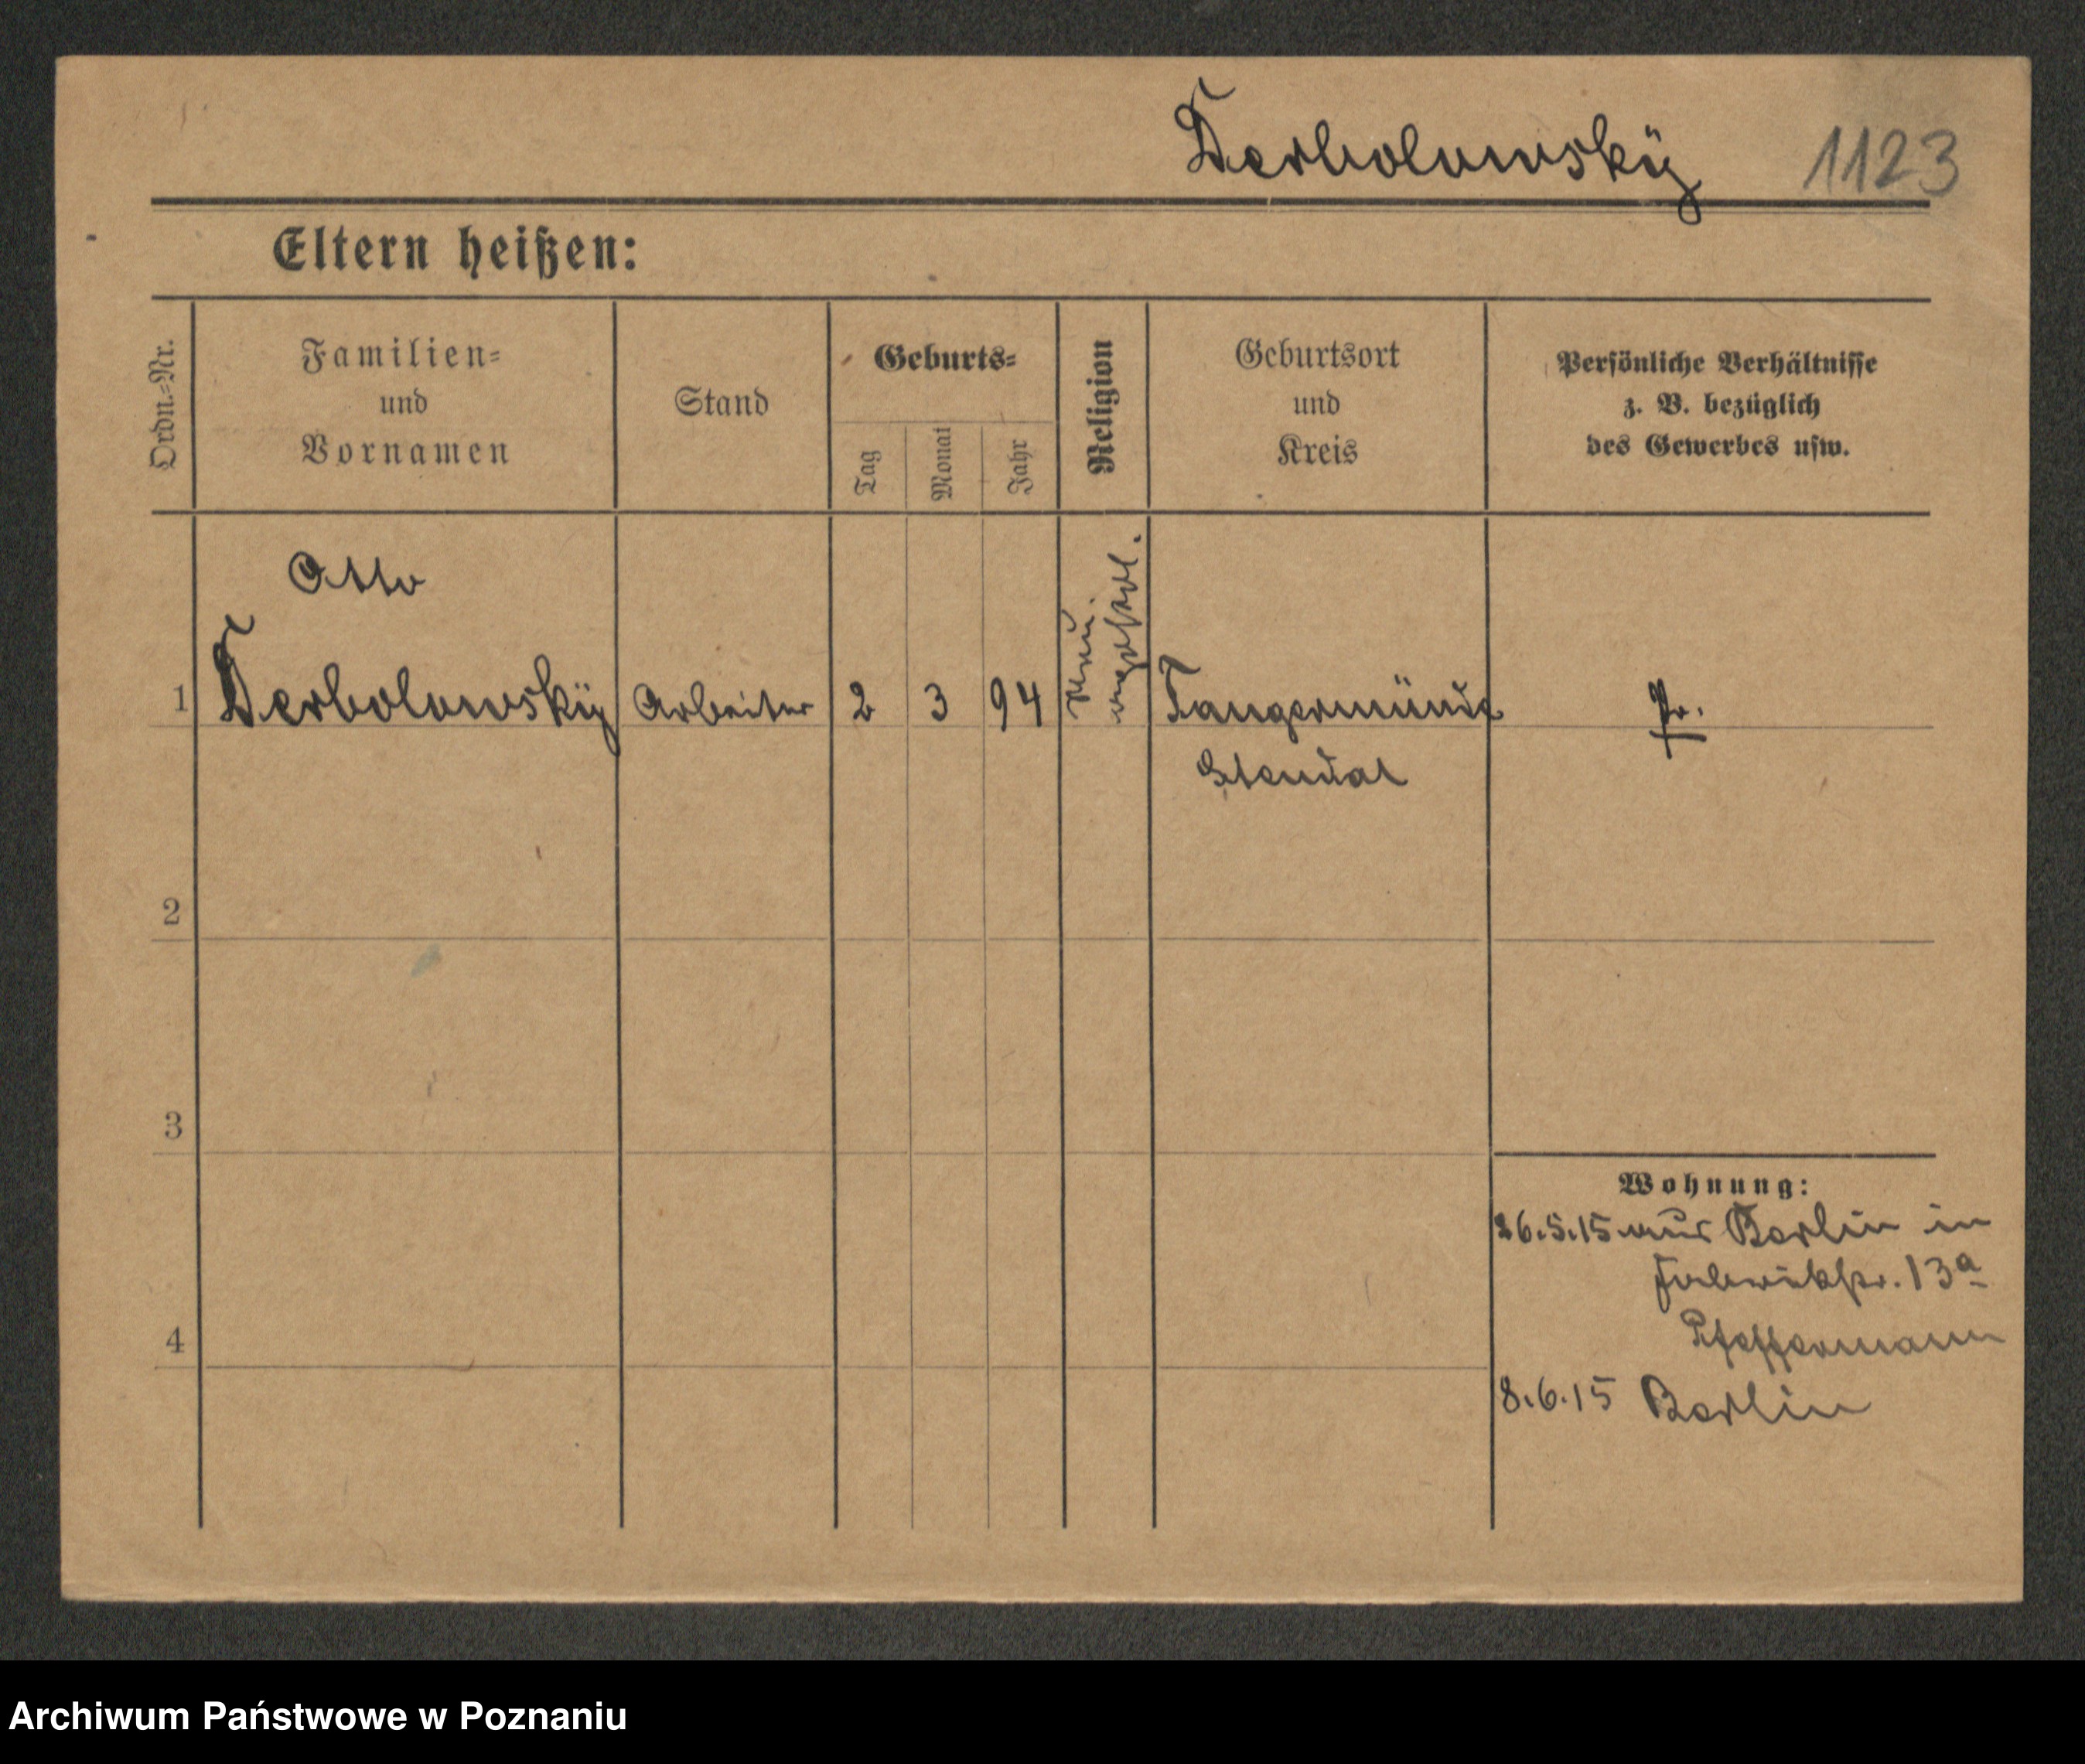 Derbolowsky 1123
Eltern heißen:
Ordn.=Nr.
Familien=
und
Vornamen
Stand
Geburts=
Tag
Monat
Jahr
Religion
Geburtsort
und
Kreis
Persönliche Verhältnisse
z. B. bezüglich
des Gewerbes usw.
Otto
1 Derbolowsky Arbeiter 2 3 94
apostol.
Tangermünde Pr.
Stendal
2
3
4
Wohnung:
26.5.15 aus Berlin in
Fabrikstr. 13a
Pfeffermann
8.6.15 Berlin
Archiwum Państwowe w Poznaniu